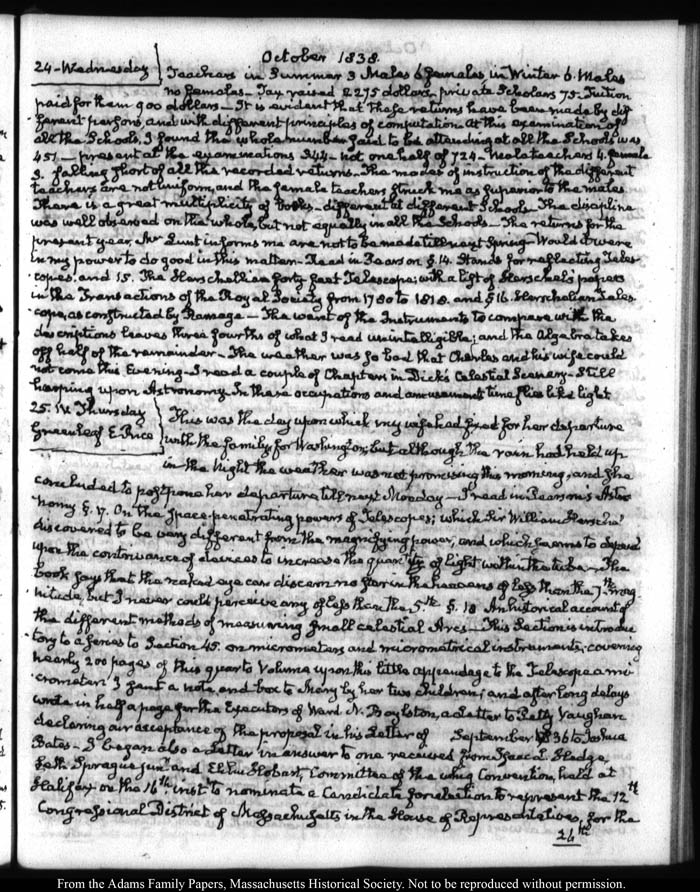 October 1838.
24-Wednesday Teachers in Summer 3 Males 6 females, in Winter 6. Males
no females - Tax raised 2275 dollars, private Scholars 75 - Tuition
paid for them 900 dollars - It is evident that these returns have been made by dif
ferent persons, and with different principles of computation. At this examination of
all the Schools, I found the whole number said to be attending at all the Schools was
451 - present at the examinations 344 - not one half of 724 - male teachers 4. female
3. falling short of all the recorded returns - The modes of instruction of the different
teachers are not uniform, and the female teachers struck me as superior to the males
There is a great multiplicity of books - different at different Schools. The discipline
was well observed on the whole, but not equally in all the Schools - The returns for the
present year, Mr Lunt informs me are not to be made till next Spring - Would it were
in my power to do good in this matter - Read in Pearson §. 14. Stands for reflecting Teles
copes, and 15. The Herschellian forty feet Telescope; with a list of Herschel's papers
in the Transactions of the Royal Society from 1780 to 1818. and § 16. Herschelian Teles
cope, as constructed by Ramage - The want of the Instruments to compare with the
descriptions leaves three fourths of what I read unintelligible; and the Algebra takes
off half of the remainder - The weather was so bad that Charles and his wife could
not come this Evening - I read a couple of Chapters in Dick's Celestial Scenery - Still
harping upon Astronomy - In these occupations and amusements time flies like light
25. Thursday This was the day upon which my wife had fixed for her departure
Greenleaf E. Price with the family for Washington; but although the rain had held up
in the Night the weather was not promising this morning, and she
concluded to postpone her departure till next Monday - I read in Pearson's Astro
nomy §. 17. On the space-penetrating powers of Telescopes; which Sir William Herschel
discovered to be very different from the magnifying power, and which seems to depend
upon the contrivance of devices to increase the quantity of light within the tube - The
book says that the naked eye can discern no star in the heavens of less than the 7th mag
nitude, but I never could perceive any of less than the 5th §. 18 An historical account of
the different methods of measuring small celestial Arcs - This Section is introduc
tory to a series to Section 45. on micrometers and micrometrical instruments; covering
nearly 200 pages of this quarto Volume upon this little appendage to the Telescope a mi
crometer. I sent a note and box to Mary by her two children; and after long delays
wrote in half a page for the Executors of Ward N. Boylston, a Letter to Petty Vaughan
declaring our acceptance of the proposal in his Letter of September 1836 to Joshua
Bates - I began also a Letter in answer to one received from Isaac L. Hedge,
Seth Sprague junr and Elihu Hobart, Committee of the whig Convention, held at
Halifax on the 16th inst to nominate a Candidate for election to represent the 12th
Congressional District of Massachusetts in the House of Representatives, for the
26th
From the Adams Family Papers, Massachusetts Historical Society. Not to be reproduced without permission.